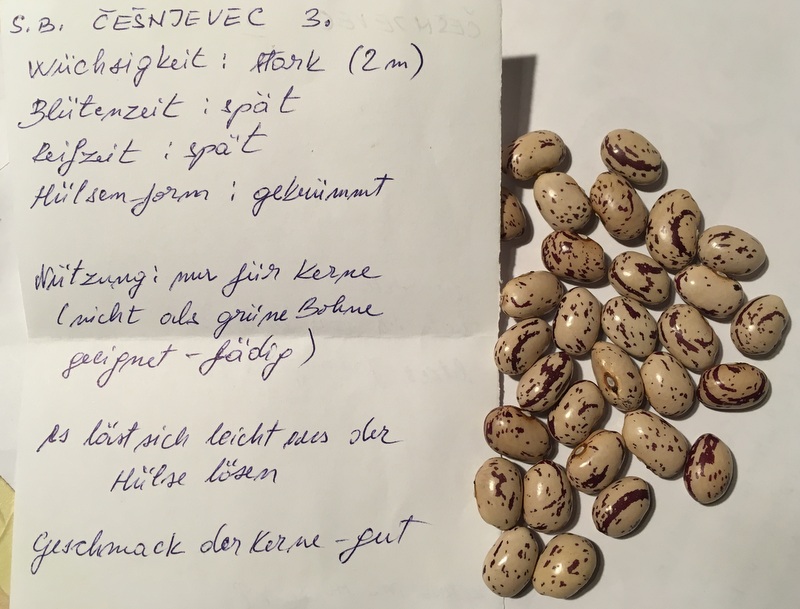 S.B. ČEŠNJEVEC 3.
Wüchsigkeit : stark (2 m)
Blütenzeit : spät
Reifzeit : spät
Hülsen-form : gekrümmt
Nützung : nur für Kerne
(nicht als grüne Bohne
geeignet - fädig)
es läst sich leicht aus der
Hülse lösen
Geschmack der Kerne - gut